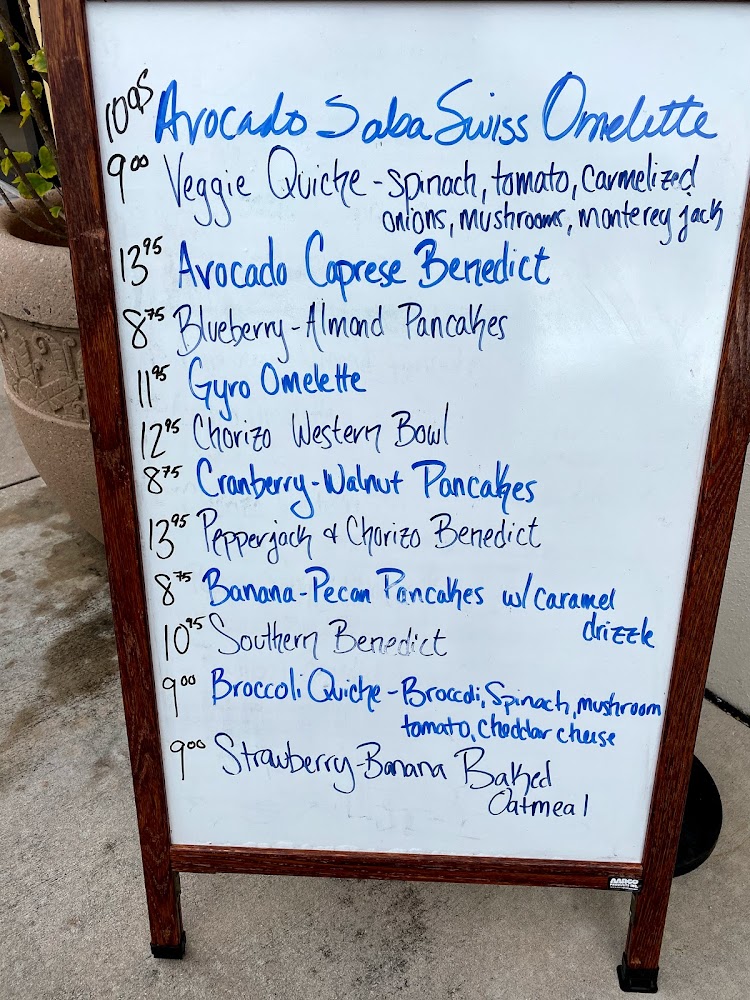 10.95 Avocado Salsa Swiss Omelette
9.00 Veggie Quiche - spinach, tomato, carmelized
onions, mushrooms, monterey jack
13.95 Avocado Caprese Benedict
8.75 Blueberry-Almond Pancakes
11.95 Gyro Omelette
12.95 Chorizo Western Bowl
8.75 Cranberry-Walnut Pancakes
13.95 Pepperjack & Chorizo Benedict
8.75 Banana-Pecan Pancakes w/caramel
drizzle
10.95 Southern Benedict
9.00 Broccoli Quiche - Broccoli, Spinach, mushroom
tomato, cheddar cheese
9.00 Strawberry-Banana Baked
Oatmeal
AARCO